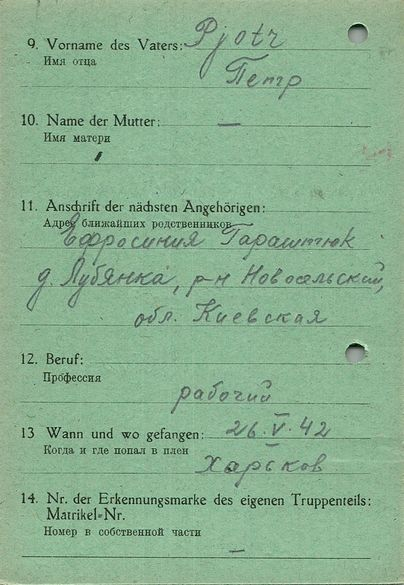 9. Vorname des Vaters: Pjotr
Имя отца
Петр
10. Name der Mutter: —
Имя матери
11. Anschrift der nächsten Angehörigen:
Адрес ближайших родственников
Ефросиния Гараштюк
д. Лубянка, р-н Новосельский,
обл. Киевская
12. Beruf:
Профессия
рабочий
13 Wann und wo gefangen: 26.V.42
Когда и где попал в плен
Харьков
14. Nr. der Erkennungsmarke des eigenen Truppenteils:
Matrikel=Nr.
Номер в собственной части
—